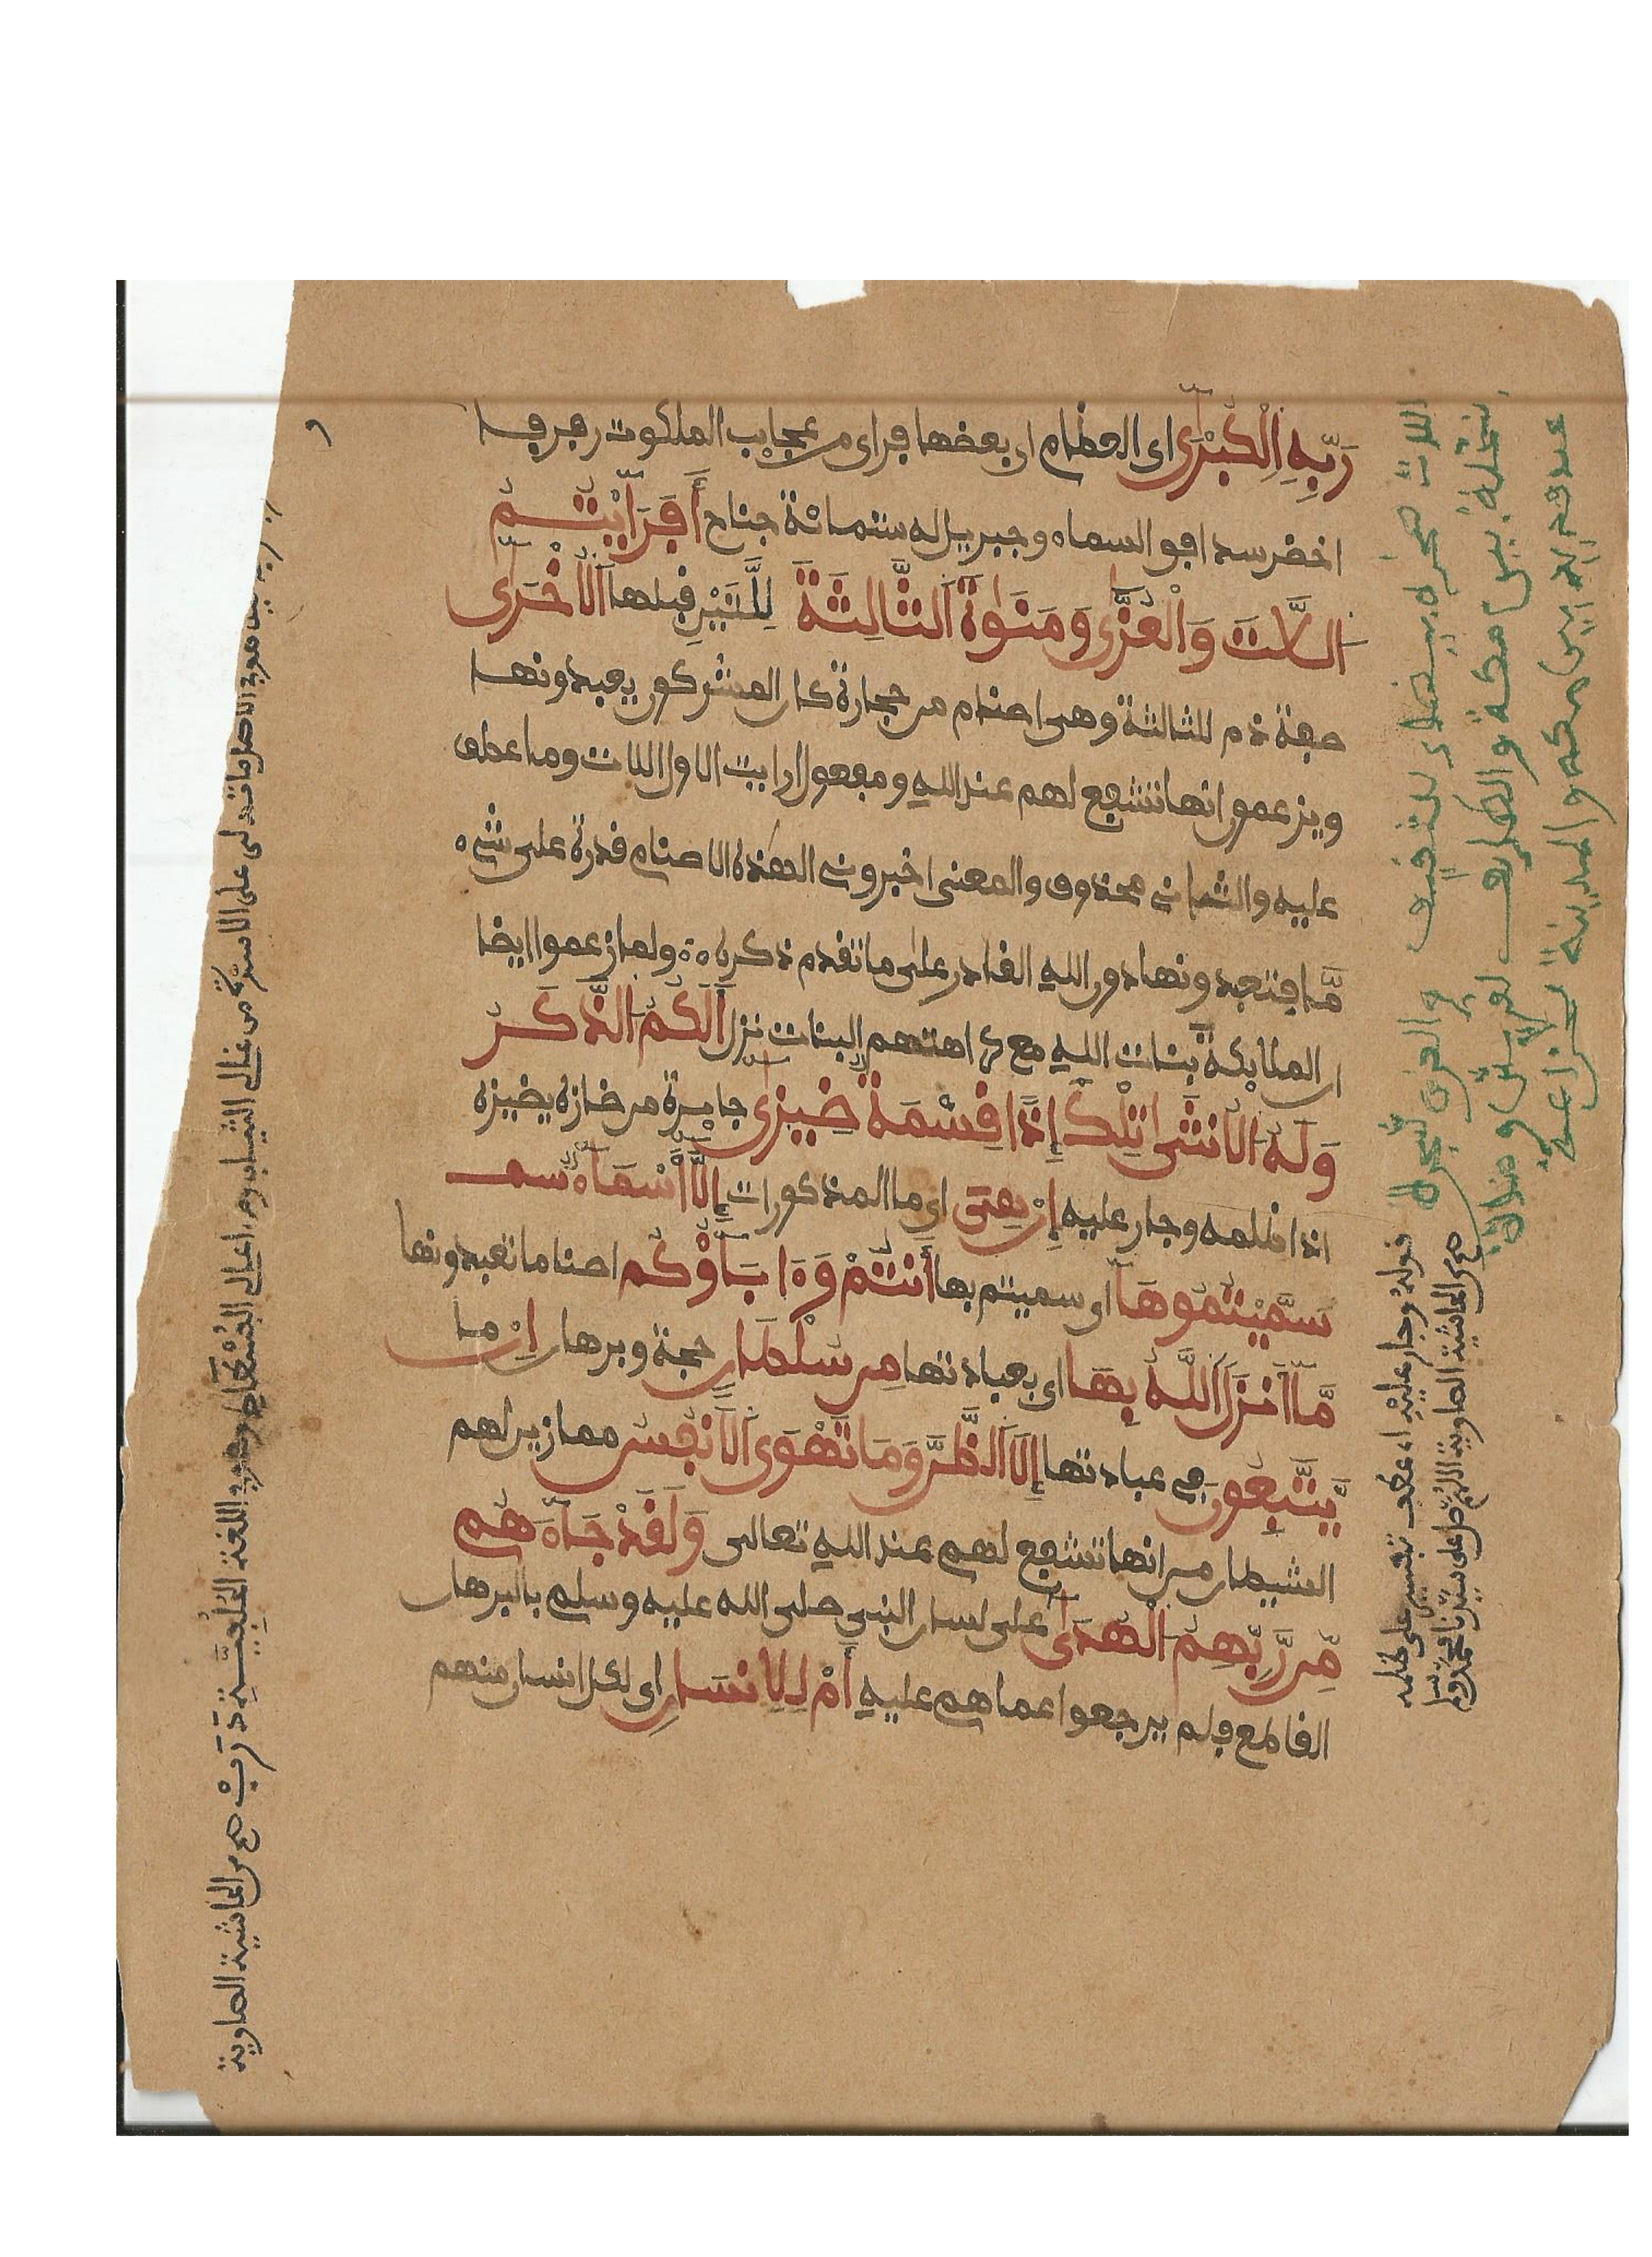 رَبِّهِ اِلْكُبْرَىٰٓ اى العظام اى بعضها فراى من عجايب الملكوت رفرفا
اخضر سد افق السماء وجبريل له ستمائة جناح أَفَرَٰيْتُمُ
اللَّٰتَ وَالْعُزّٰى وَمَنَوٰةَ اَلثَّالِثَةَ لِلَّتَيْنِ قبلها اَلُاخْرَىٰٓ
صفة ذم للثالثة وهى اصنام من حجارة كان المشركون يعبدونها
ويزعمون انها تشفع لهم عند الله ومفعول ارايت الاول اللات وما عطف
عليه والثانى محذوف والمعنى اخبرونى الهذه الاصنام قدرة على شىء
مّا فتعبدونها دون الله القادر على ما تقدم ذكره ولما زعموا ايضا
ان الملايكة بنات الله مع كراهتهم البنات نزل أَلَكُمُ الذَّكَرُ
وَلَهُ الُانثَىٰ تِلْكَ إِذًا قِسْمَةٌ ضِيزَىٰٓ جايرة من ضازه يضيزه
اذا ظلمه وجار عليه إِنْ هِىَ اى ما المذكورات إِلَّآ أَسْمَآءٌ سمـ
سَمَّيْتُمُوهَآ اى سميتم بها أَنتُمْ وَءَابَآؤُكُم اصناما تعبدونها
مَّآ أَنزَلَ اَللَّهُ بِهَا اى بعبادتها مِن سُلْطَٰنٍ حجة وبرهان اِنْ ما
يَّتَّبِعُونَ فى عبادتها إِلَّا اَلظَّنَّ وَمَا تَهْوَى اَلَانفُسُ مما زين لهم
الشيطان من انها تشفع لهم عند الله تعالى وَلَقَدْ جَآءَهُم
مِّن رَّبِّهِمُ الْهُدَىٰٓ على لسان النبى صلى الله عليه وسلم بالبرهان
القاطع فلم يرجعوا عما هم عليه أَمْ لِلِانسَٰنِ اى لكل انسان منهم
اللات صخرة بيضاء لثقيف والعزى شجرة
بنخلة بين مكة والطائف لقريش ومناة
مكة والمدينة
قوله وجار عليه اى عطف تفسير على ظلمه
صح من الحاشية الصاوية اللهم صل على سيدنا محمد وسلم
الاصل ما تدلى على الاسرّة من غالى الثياب ومن اعالى اللغة صح من الحاشية الصاوية